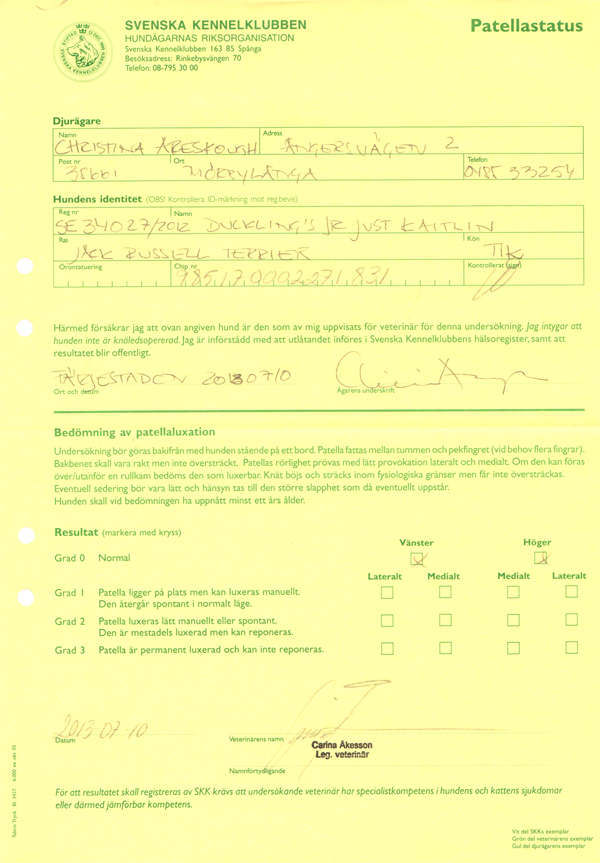 SVENSKA KENNELKLUBBEN
HUNDÄGARNAS RIKSORGANISATION
Svenska Kennelklubben 163 85 Spånga
Besöksadress: Rinkebysvängen 70
Telefon: 08-795 30 00
Patellastatus
Djurägare
Namn Adress
CHRISTINA ÅRESKOUGH ÅNGERSVÄGEN 2
Post nr Ort Telefon
38661 MÖRBYLÅNGA 0485 33254
Hundens identitet (OBS! Kontrollera ID-märkning mot reg.bevis)
Reg nr Namn
SE34027/2012 DUCKLING'S JR JUST KAITLIN
Ras Kön
JACK RUSSELL TERRIER TIK
Örontatuering Chip nr Kontrollerat (sign)
Härmed försäkrar jag att ovan angiven hund är den som av mig uppvisats för veterinär för denna undersökning. Jag intygar att
hunden inte är knäledsopererad. Jag är införstådd med att utlåtandet införes i Svenska Kennelklubbens hälsoregister, samt att
resultatet blir offentligt.
FÄRJESTADEN 20130710
Ort och datum Ägarens underskrift
Bedömning av patellaluxation
Undersökning bör göras bakifrån med hunden stående på ett bord. Patella fattas mellan tummen och pekfingret (vid behov flera fingrar).
Bakbenet skall vara rakt men inte översträckt. Patellas rörlighet prövas med lätt provokation lateralt och medialt. Om den kan föras
över/utanför en rullkam bedöms den som luxerbar. Knät böjs och sträcks inom fysiologiska gränser men får inte översträckas.
Eventuell sedering bör vara lätt och hänsyn tas till den större slapphet som då eventuellt uppstår.
Hunden skall vid bedömningen ha uppnått minst ett års ålder.
Resultat (markera med kryss)
Vänster Höger
Grad 0 Normal
Lateralt Medialt Medialt Lateralt
Grad 1 Patella ligger på plats men kan luxeras manuellt.
Den återgår spontant i normalt läge.
Grad 2 Patella luxeras lätt manuellt eller spontant.
Den är mestadels luxerad men kan reponeras.
Grad 3 Patella är permanent luxerad och kan inte reponeras.
2013-07-10
Datum Veterinärens namn
Carina Åkesson
Leg. veterinär
Namnförtydligande
För att resultatet skall registreras av SKK krävs att undersökande veterinär har specialistkompetens i hundens och kattens sjukdomar
eller därmed jämförbar kompetens.
Vit del SKKs exemplar
Grön del veterinärens exemplar
Gul del djurägarens exemplar